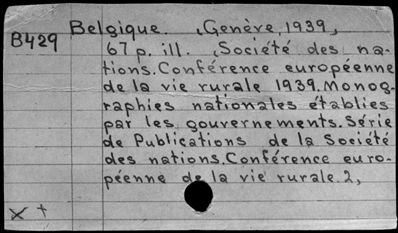 Belgique. ,Genève,1939,
B429
67 p. ill. ,Société des na-
tions.Conférence européenne
de la vie rurale 1939.Monog-
raphies nationales établies
par les gouvernements.Série
de Publications de la Société
des nations.Conférence euro-
péenne de la vie rurale.2,
x +